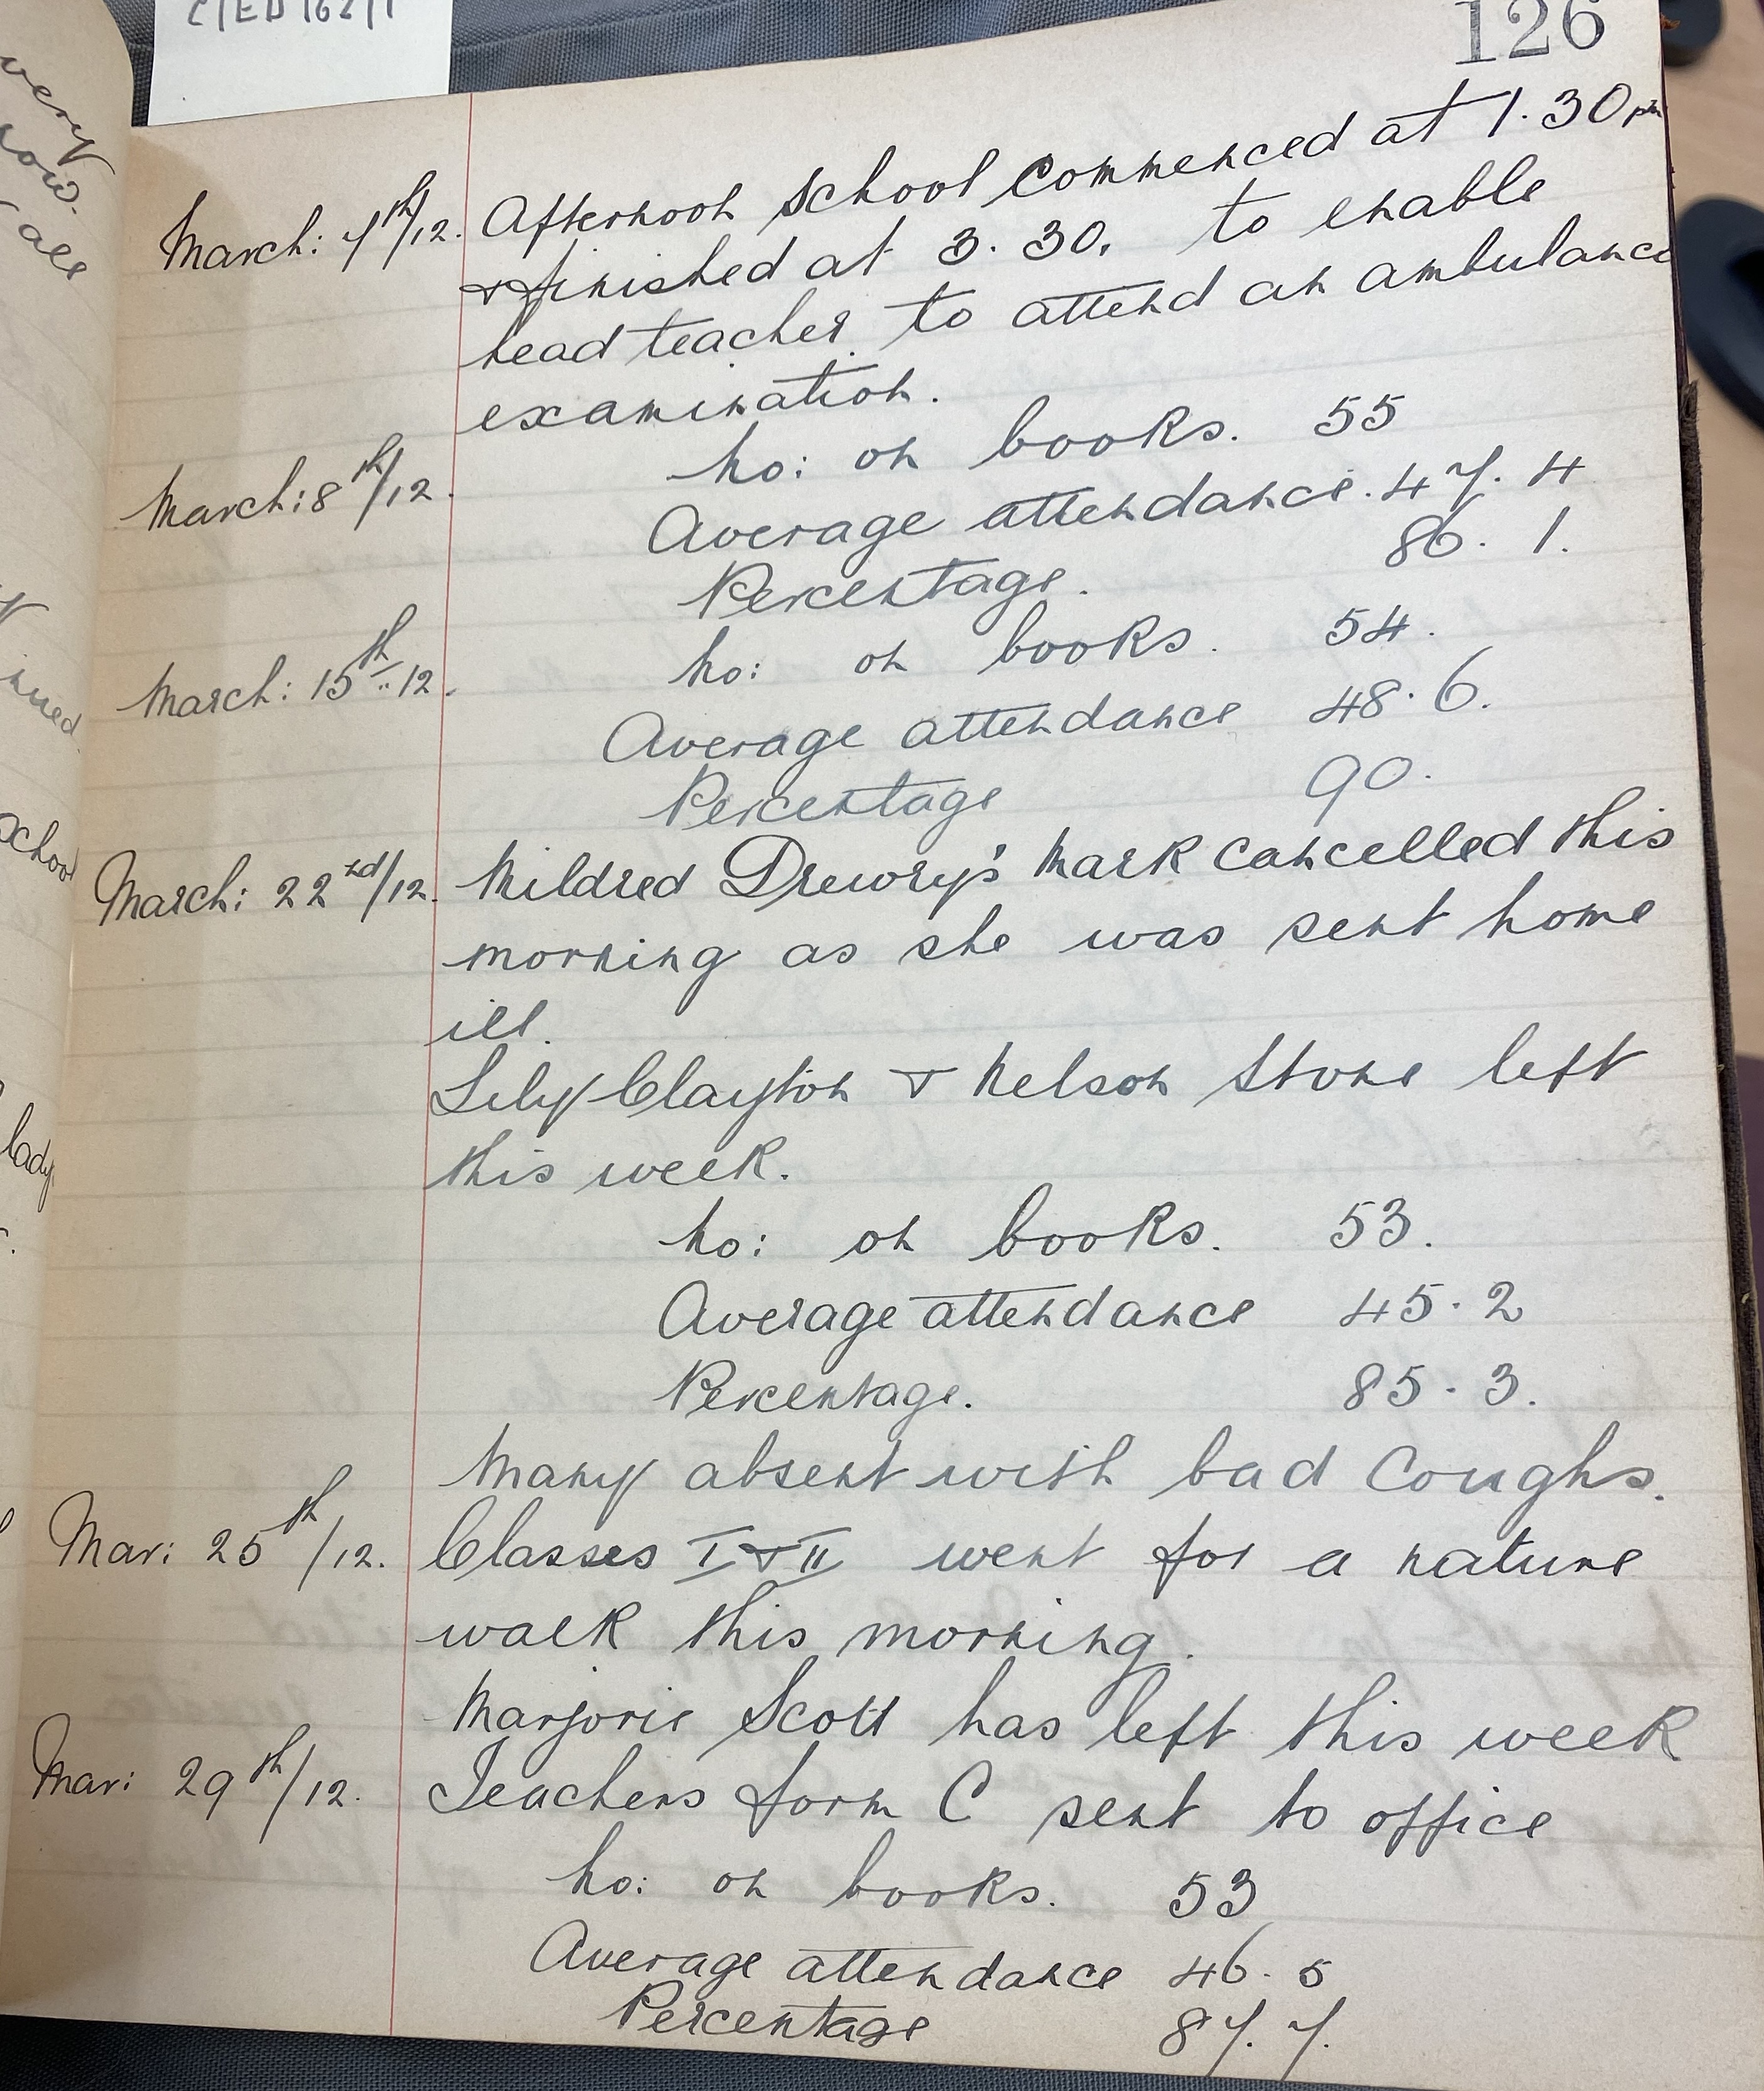 126
March: 7th/12. Afternoon School Commenced at 1.30 pm
& finished at 3.30. to enable
head teacher to attend an ambulance
examination.
March: 8th/12. No: on books. 55
Average attendance. 47.4
Percentage. 86.1.
March: 15th..12. No: on books. 54.
Average attendance 48.6.
Percentage 90.
March: 22nd/12. Mildred Drewry's Mark cancelled this
morning as she was sent home
ill.
Lily Clayton & Nelson Stone left
this week.
No: on books. 53.
Average attendance 45.2
Percentage. 85.3.
Many absent with bad Coughs.
Mar: 25th/12. Classes I & II went for a nature
walk this morning.
Marjorie Scott has left this week
Mar: 29th/12. Teachers form C sent to office
No: on books. 53
Average attendance 46.5
Percentage 87.7.
very
all
school
lady